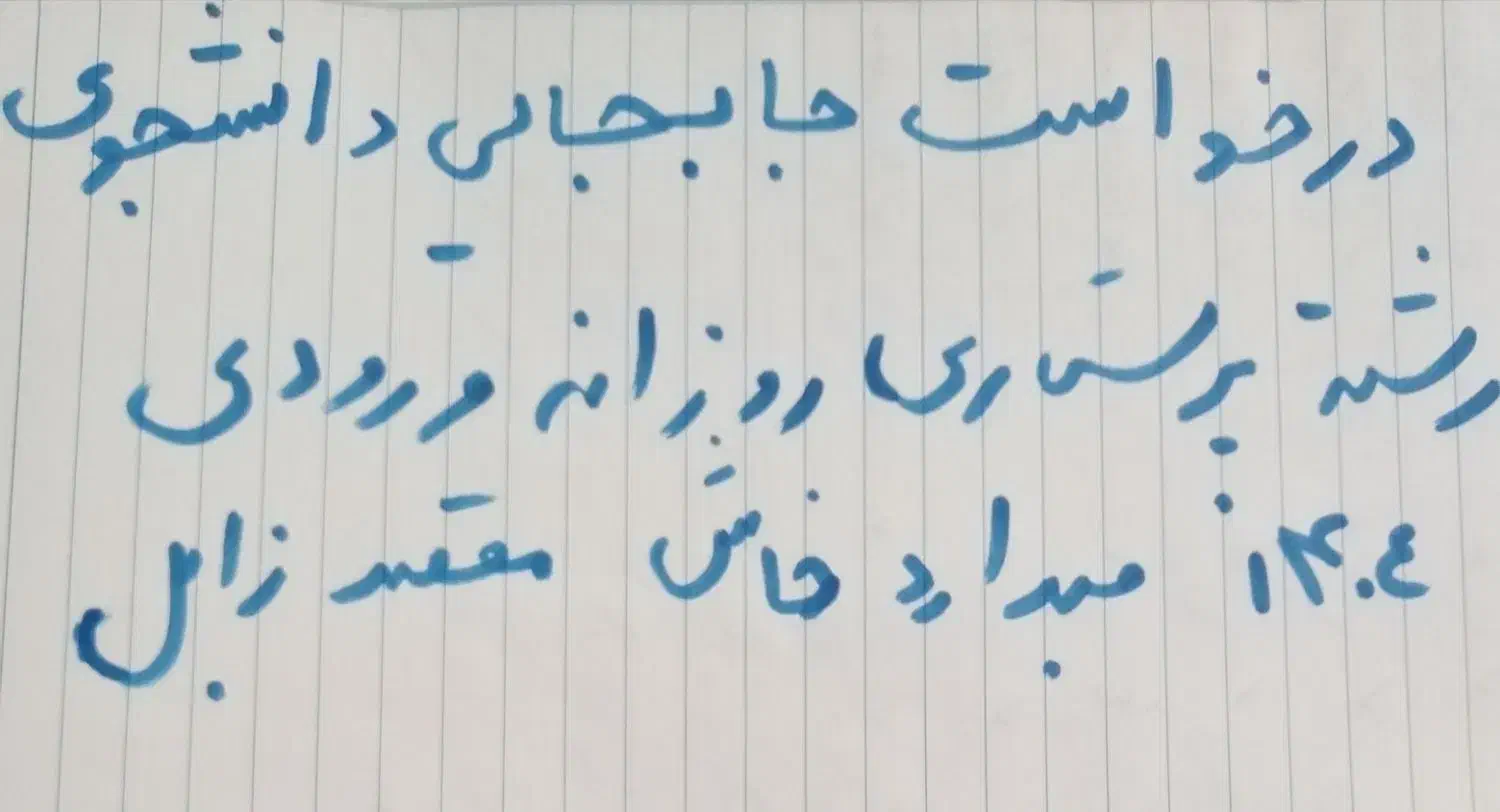 درخواست جابجایی دانشجوی
رشته پرستاری روزانه ورودی
۱۴۰٤ مبدا خاش مقصد زابل